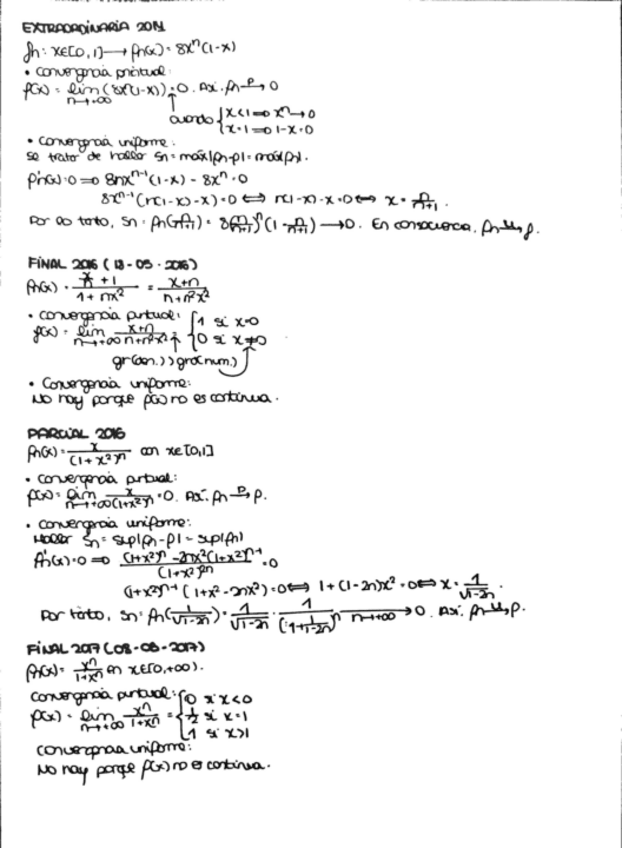 EXTRAORDINARIA 2014
fn: x∈[0,1] → fn(x) = 8xⁿ(1-x)
• Convergencia puntual:
f(x) = lim n→+∞ (8xⁿ(1-x)) = 0. Así, fn →p 0
cuando { x<1 ⇒ xⁿ→0
x=1 ⇒ 1-x=0
• Convergencia uniforme:
Se trata de hallar Sn = máx|fn-f| = máx|fn|.
f'n(x)=0 ⇒ 8nxⁿ⁻¹(1-x) - 8xⁿ = 0
8xⁿ⁻¹(n(1-x)-x)=0 ⇔ n(1-x)-x=0 ⇔ x = n/(n+1).
Por lo tanto, Sn = fn(n/(n+1)) = 8(n/(n+1))ⁿ(1 - n/(n+1)) → 0. En consecuencia, fn →u f.
FINAL 2016 (18-05-2016)
fn(x) = (x/n + 1)/(1+nx²) = (x+n)/(n+n²x²)
• Convergencia puntual:
f(x) = lim n→+∞ (x+n)/(n+n²x²) = { 1 si x=0
0 si x≠0
gr(den.)>gr(num.)
• Convergencia uniforme:
No hay porque f(x) no es continua.
PARCIAL 2016
fn(x) = x/(1+x²)ⁿ con x∈[0,1]
• Convergencia puntual:
f(x) = lim n→+∞ x/(1+x²)ⁿ = 0. Así, fn →p f.
• Convergencia uniforme:
Hallar Sn = sup|fn-f| = sup|fn|
f'n(x)=0 ⇒ ((1+x²)ⁿ - 2nx²(1+x²)ⁿ⁻¹)/(1+x²)²ⁿ = 0
(1+x²)ⁿ⁻¹(1+x²-2nx²)=0 ⇔ 1+(1-2n)x²=0 ⇔ x = 1/√(1-2n).
Por tanto, Sn = fn(1/√(1-2n)) = 1/√(1-2n) · 1/(1+1/(1-2n))ⁿ n→+∞ → 0. Así, fn →u f.
FINAL 2017 (08-06-2017)
fn(x) = xⁿ/(1+xⁿ) en x∈[0,+∞).
Convergencia puntual:
f(x) = lim n→+∞ xⁿ/(1+xⁿ) = { 0 si x<0
1/2 si x=1
1 si x>1
Convergencia uniforme:
No hay porque f(x) no es continua.